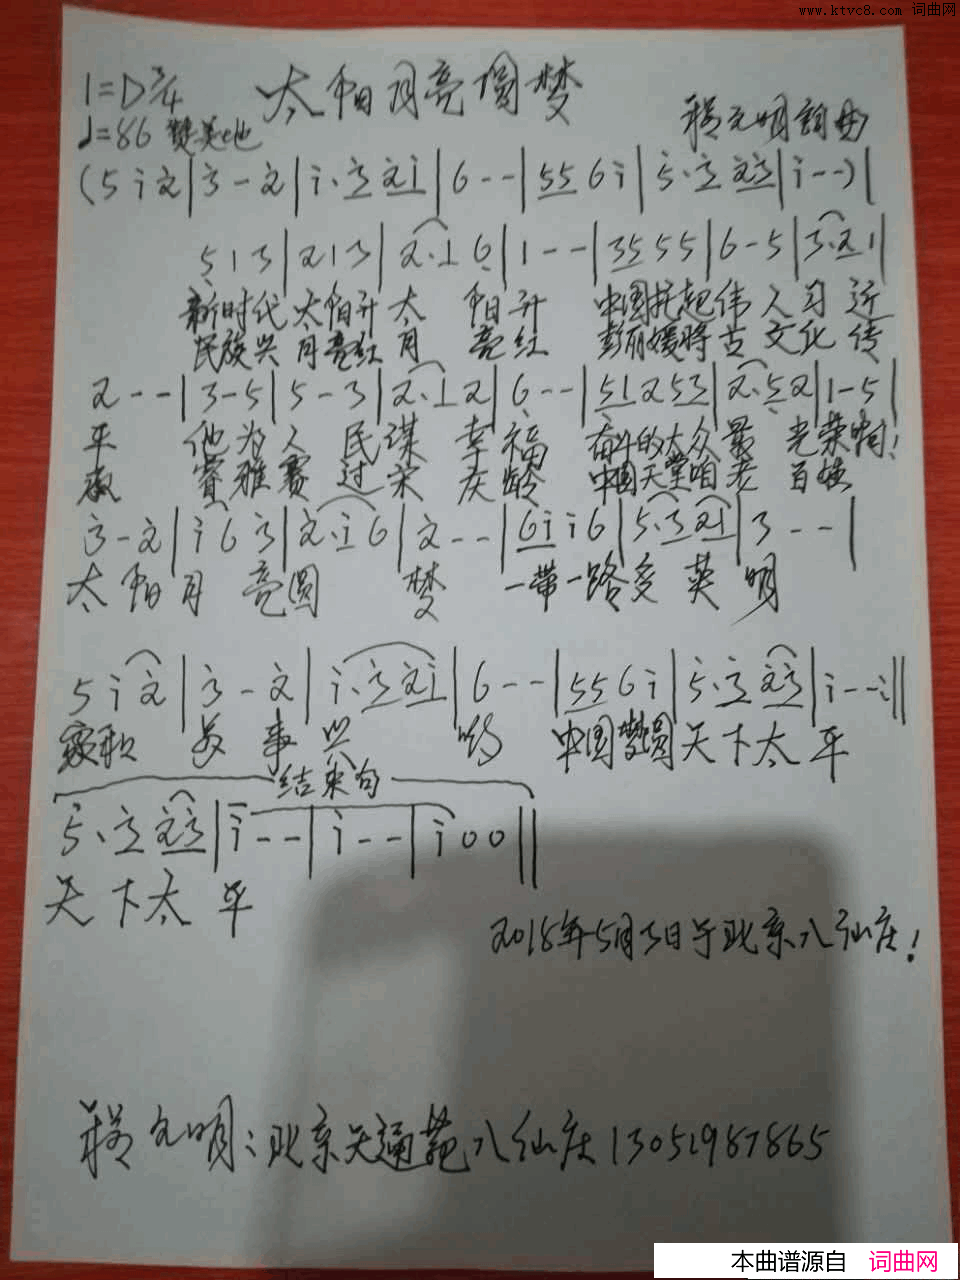 www.ktvc8.com 词曲网
1=D 3/4 太阳月亮圆梦
♩=86 赞美地 程元明詞曲
(5 i 2̇|3̇ - 2̇|i·3̇ 2̇i|6 - -|55 6 i|5̇·3̇ 2̇3̇|i - -)|
5 1 3|2 1 3|2·1 6|1 - -|35 5 5|6 - 5|3·2 1|
新时代 太阳升 太 阳升 中国托起伟 人习 近
民族兴 月亮红 月 亮红 彭丽媛将古 文化 传
2 - -|3 - 5|5 - 3|2·1 2|6 - -|51 2 53|2·5 2|1 - 5|
平 他为人 民谋 幸福 奋斗的大众最 光荣啊!
承 睿雅赛 过宋 庆龄 中国天堂咱老 百姓
3̇ - 2̇|i 6 3̇|2̇·i 6|2̇ - -|6i i 6|5·3̇ 2̇i|3 - -|
太阳月 亮圆 梦 一带一路多 英 明
5 i 2̇|3̇ - 2̇|i·3̇ 2̇i|6 - -|55 6 i|5̇·3̇ 2̇3̇|i - -:||
家和 万 事 兴 哟 中国梦圆天下太 平
结束句
5̇·3̇ 2̇3̇|i - -|i - -|i 0 0||
天下太 平
2018年5月3日于北京八仙庄!
程元明:北京天通苑八仙庄13051987865
本曲谱源自 词曲网